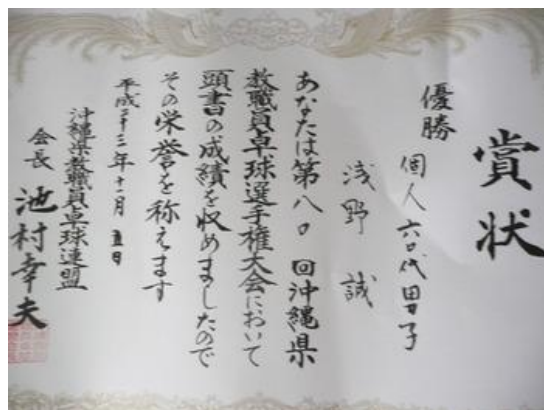 賞状
優勝
個人 六〇代男子
浅野 誠
あなたは第八〇回沖縄県
教職員卓球選手権大会において
頭書の成績を収めましたので
その栄誉を称えます
平成二十三年十二月 五日
沖縄県教職員卓球連盟
会長 池村幸夫